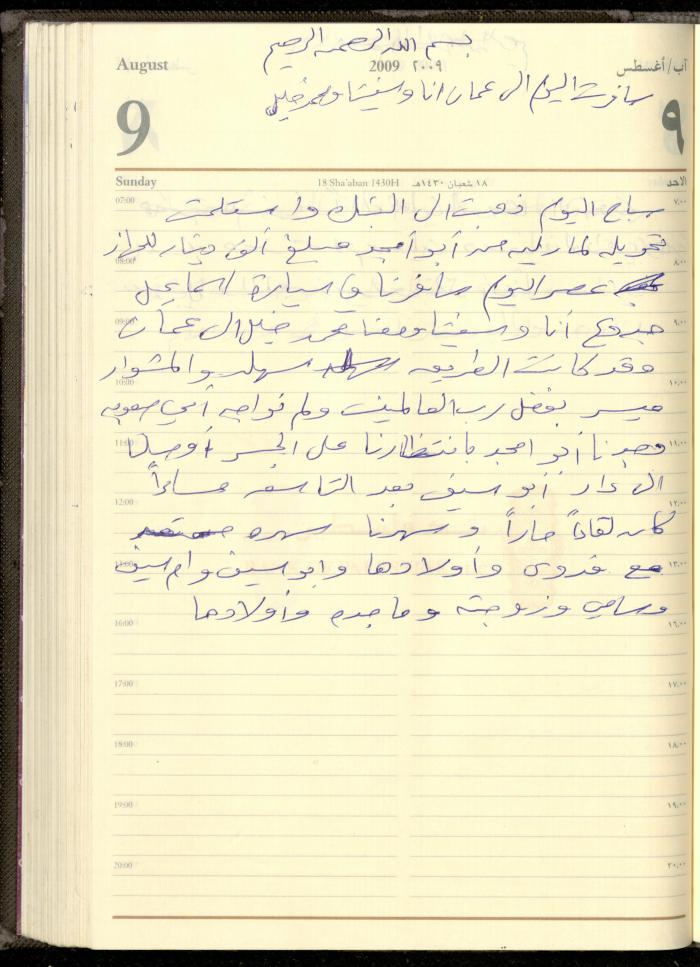 بسم الله الرحمن الرحيم
August 2009 ٢٠٠٩ آب/أغسطس
سافرت اليوم الى عمان انا وشفيقتنا ومحمد خليل
9 ٩
Sunday 18 Sha'aban 1430H ١٨ شعبان ١٤٣٠هـ الأحد
07:00 ٧:٠٠
صباح اليوم ذهبت الى البنك واستلمت
تحويله مارليه من أبو أمجد مبلغ ألف دينار للجهاز
08:00 ٨:٠٠
عصر اليوم سافرنا في سيارة اسماعيل
09:00 ٩:٠٠
جدوع أنا و ومعنا محمد خليل الى عمان
وقد كانت الطريق سهله والمشوار
10:00 ١٠:٠٠
ميسر بفضل رب العالمين ولم نواجه أي صعوبه
11:00 ١١:٠٠
وجدنا أبو امجد بانتظارنا على الجسر أوصلنا
الى دار أبو سيف بعد التاسعه مساءاً
12:00 ١٢:٠٠
كان لقاءاً حاراً وسهرنا سهره
13:00 ١٣:٠٠
مع فدوى وأولادها وابو سيف وام سيف
وسامي وزوجته وماجده وأولادها
16:00 ١٦:٠٠
17:00 ١٧:٠٠
18:00 ١٨:٠٠
19:00 ١٩:٠٠
20:00 ٢٠:٠٠